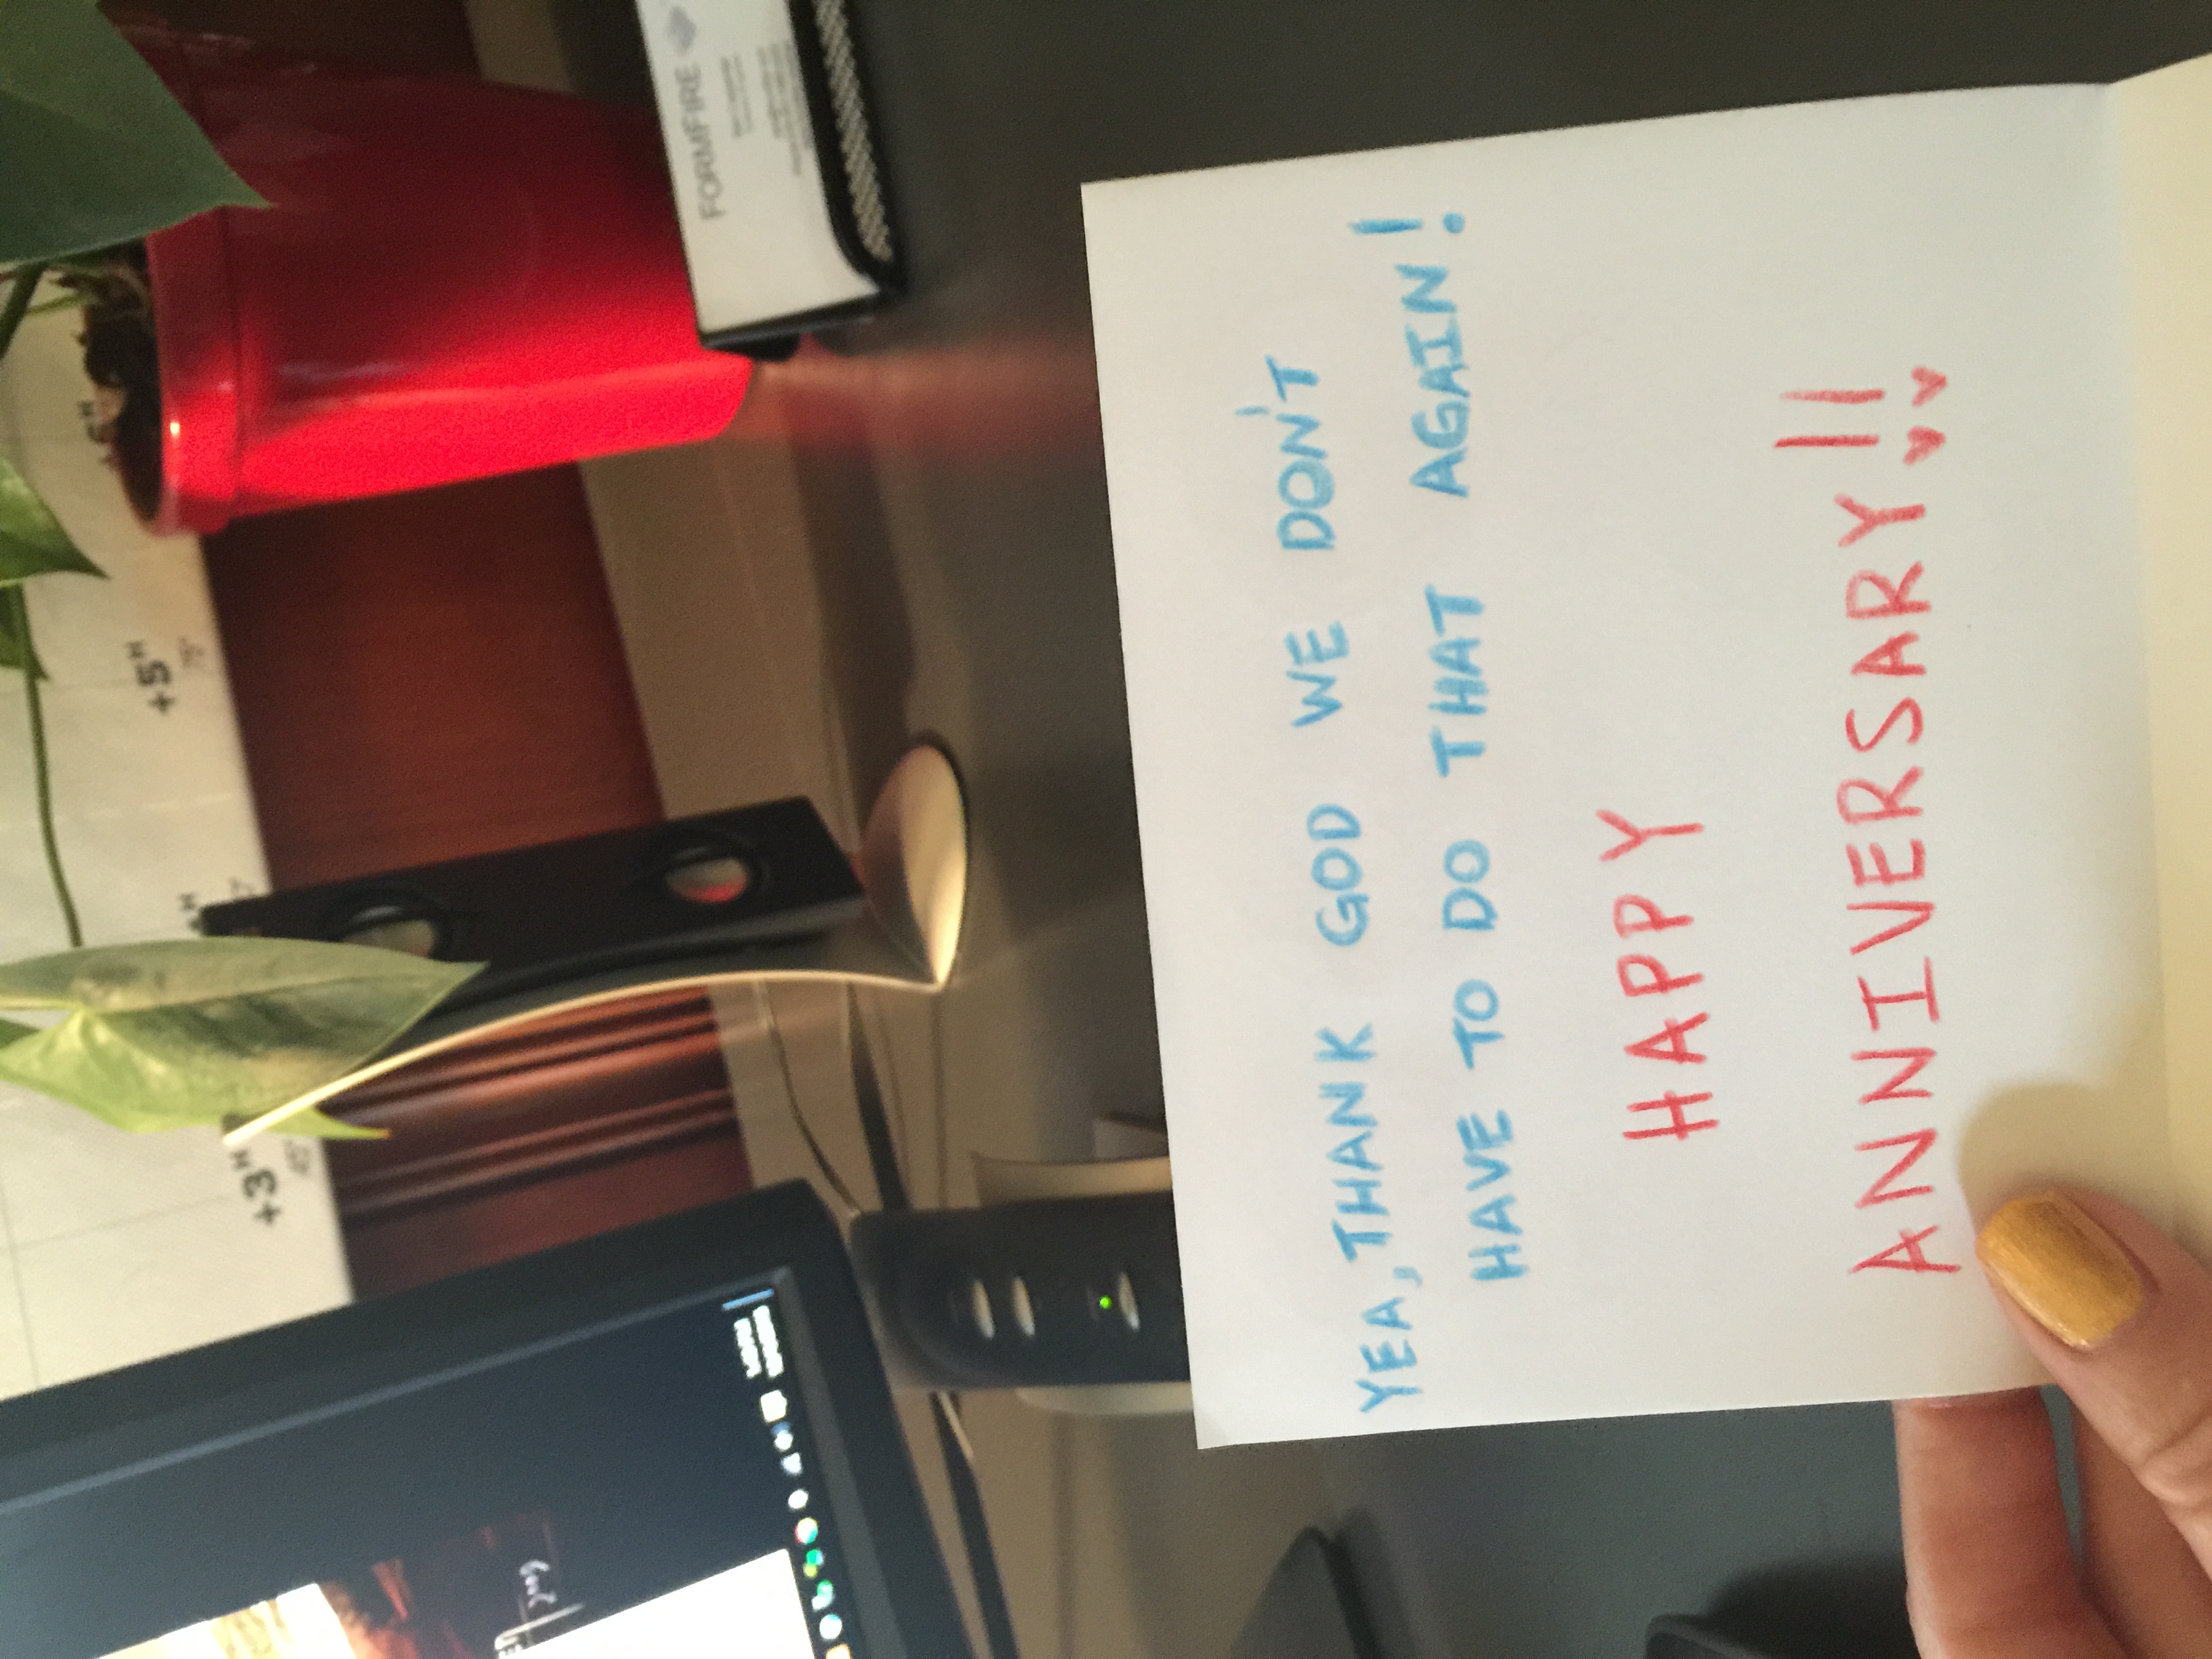 +3H
45°
+5H
75°
2009
FORMFIRE
YEA, THANK GOD WE DON'T
HAVE TO DO THAT AGAIN!
HAPPY
ANNIVERSARY!!